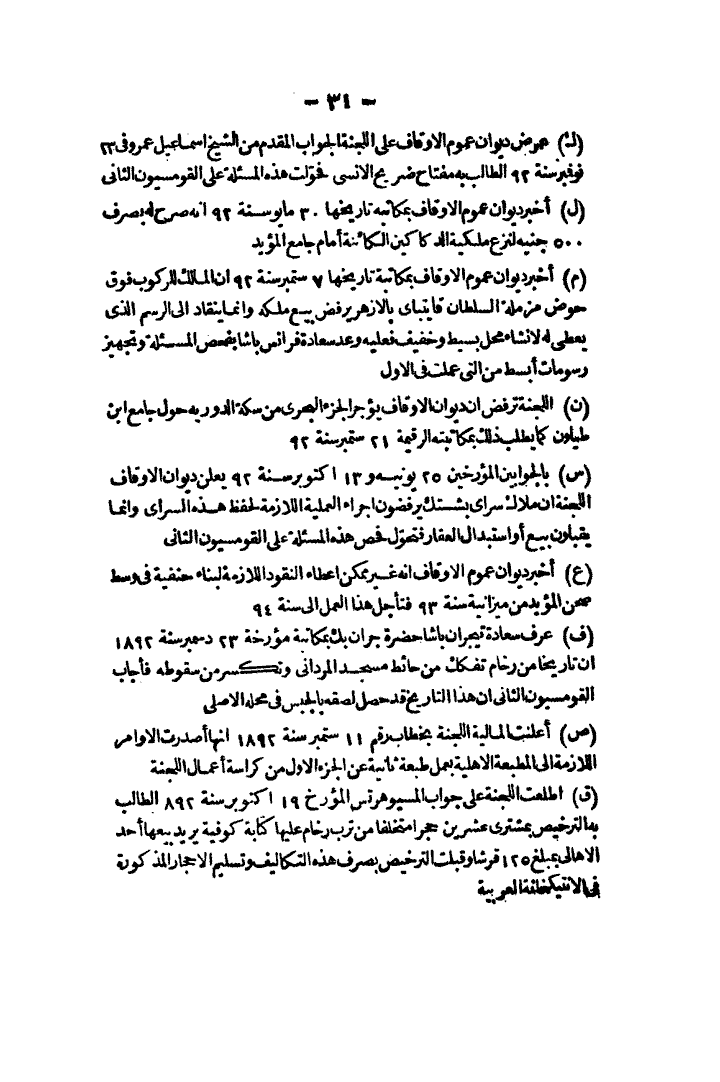 – ٣٤ –
(ك) عرض ديوان عموم الاوقاف على اللجنة الجواب المقدم من الشيخ اسماعيل عمرو فى ٢٣
نوفمبر سنة ٩٢ الطالب به مفتاح ضريح الانسى فحوّلت هذه المسئلة على القومسيون الثانى
(ل) أخبر ديوان عموم الاوقاف بمكاتبه تاريخها ٣٠ مايو سنة ٩٢ انه صرح له بصرف
٥٠٠ جنيه لنزع ملكية الدكاكين الكائنة أمام جامع المؤيد
(م) أخبر ديوان عموم الاوقاف بمكاتبة تاريخها ٧ ستمبر سنة ٩٢ ان المالك للركوب فوق
حوض مزملة السلطان قايتباى بالازهر يرفض بيع ملكه وانما ينقاد الى الرسم الذى
يعطى له لانشاء محل بسيط وخفيف فعليه وعد سعادة فرانس باشا بفحص المسئلة وتجهيز
رسومات أبسط من التى عملت فى الاول
(ن) اللجنة ترفض ان ديوان الاوقاف يؤجر الجزء البحرى من سكة الدوريه حول جامع ابن
طيلون كما يطلب ذلك بمكاتبته الرقيمة ٢١ ستمبر سنة ٩٢
(س) بالجوابين المؤرخين ٢٥ يونيه و ١٣ اكتوبر سنة ٩٢ يعلن ديوان الاوقاف
اللجنة ان ملاك سراى بشتك يرفضون اجراء العملية اللازمة لحفظ هذه السراى وانما
يقبلون بيع أو استبدال العقار فتحوّل فحص هذه المسئلة على القومسيون الثانى
(ع) أخبر ديوان عموم الاوقاف انه غير ممكن اعطاء النقود اللازمة لبناء حنفية فى وسط
صحن المؤيد من ميزانية سنة ٩٣ فتأجل هذا العمل الى سنة ٩٤
(ف) عرف سعادة تيجران باشا حضرة جران بك بمكاتبة مؤرخة ٢٣ دسمبر سنة ١٨٩٢
ان تاريخا من رخام تفكك من حائط مسجد المردانى وتكسر من سقوطه فأجاب
القومسيون الثانى ان هذا التاريخ قد حصل لصقه بالجبس فى محله الاصلى
(ص) أعلنت المالية اللجنة بخطاب رقم ١١ ستمبر سنة ١٨٩٢ انها أصدرت الاوامر
اللازمة الى المطبعة الاهلية بعمل طبعة ثانية عن الجزء الاول من كراسة أعمال اللجنة
(ق) اطلعت اللجنة على جواب المسيو هرتس المؤرخ ١٩ اكتوبر سنة ٨٩٢ الطالب
به الترخيص بمشترى عشرين حجرا متخلفا من ترب رخام عليها كتابة كوفية يريد بيعها أحد
الاهالى بمبلغ ١٢٥ قرشا وقبلت الترخيص بصرف هذه التكاليف وتسليم الاحجار المذكورة
فى الانتيكخانة العربية